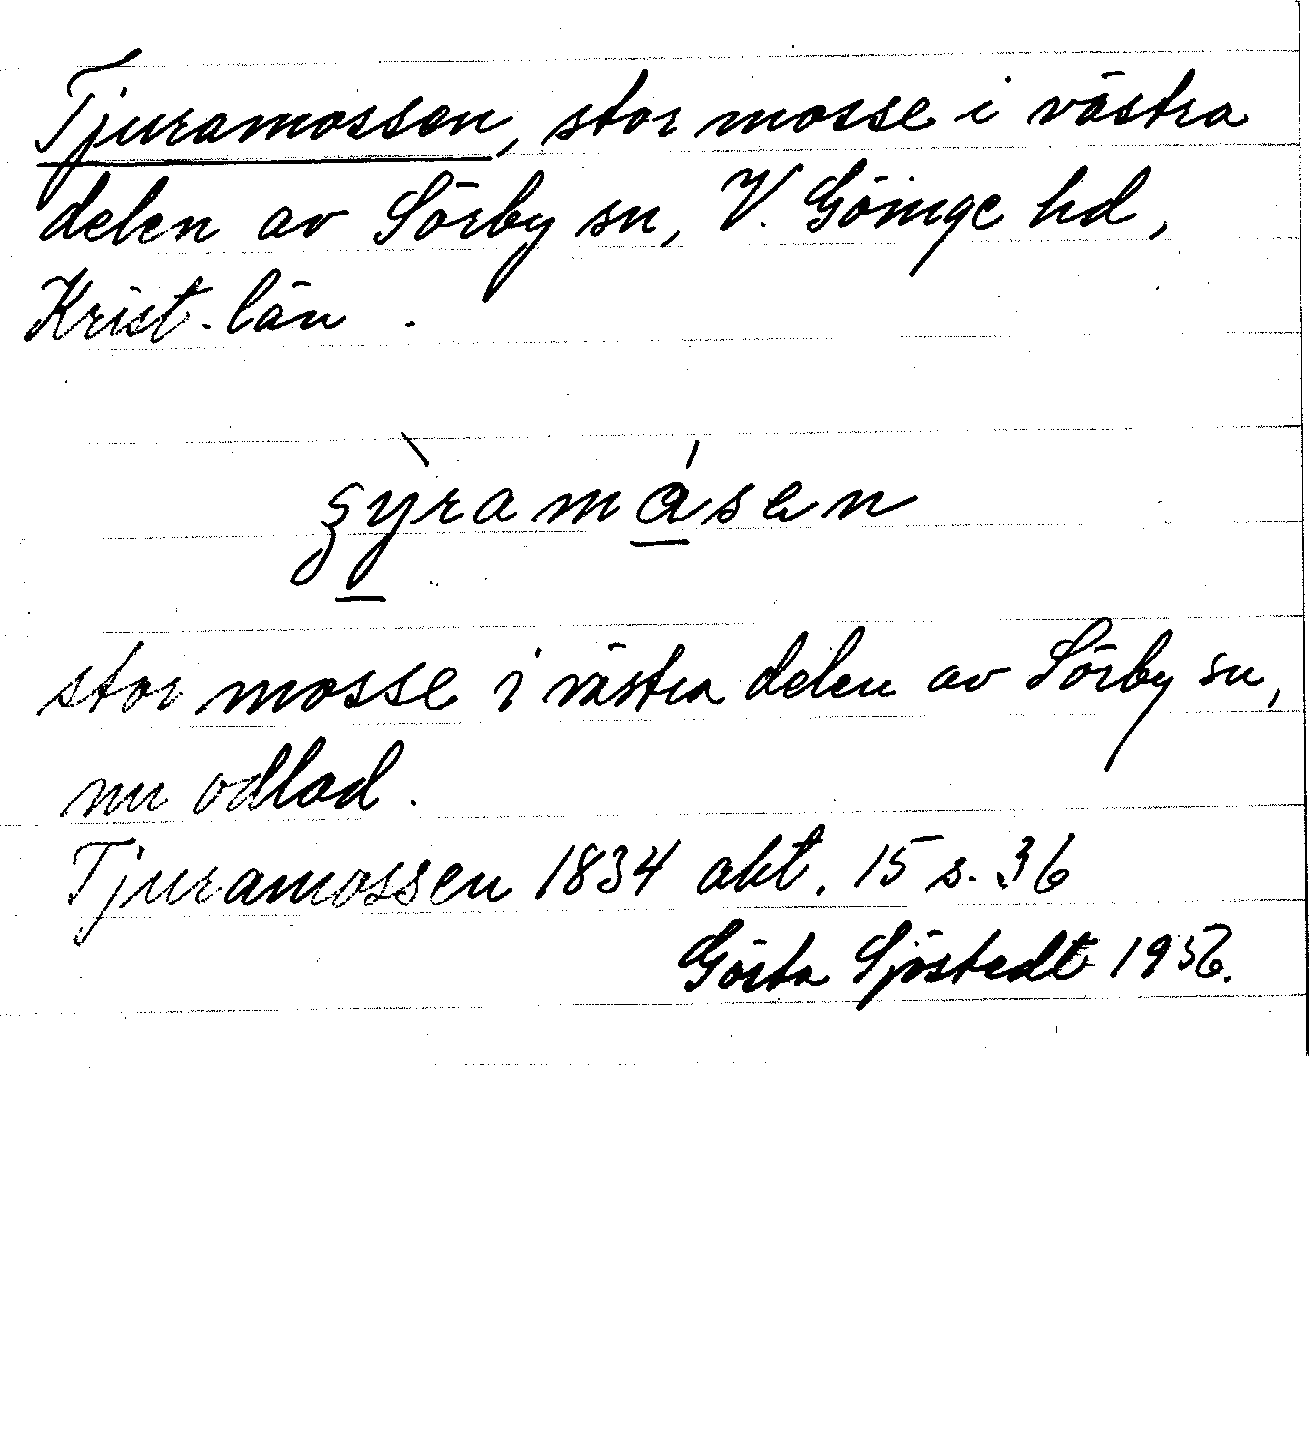 Tjuramossen, stor mosse i västra
delen av Sörby sn, V. Göinge hd,
Krist. län.
ʒỳramásen
stor mosse i västra delen av Sörby sn,
nu odlad.
Tjuramossen 1834 akt. 15 s. 36
Gösta Sjöstedt 1956.